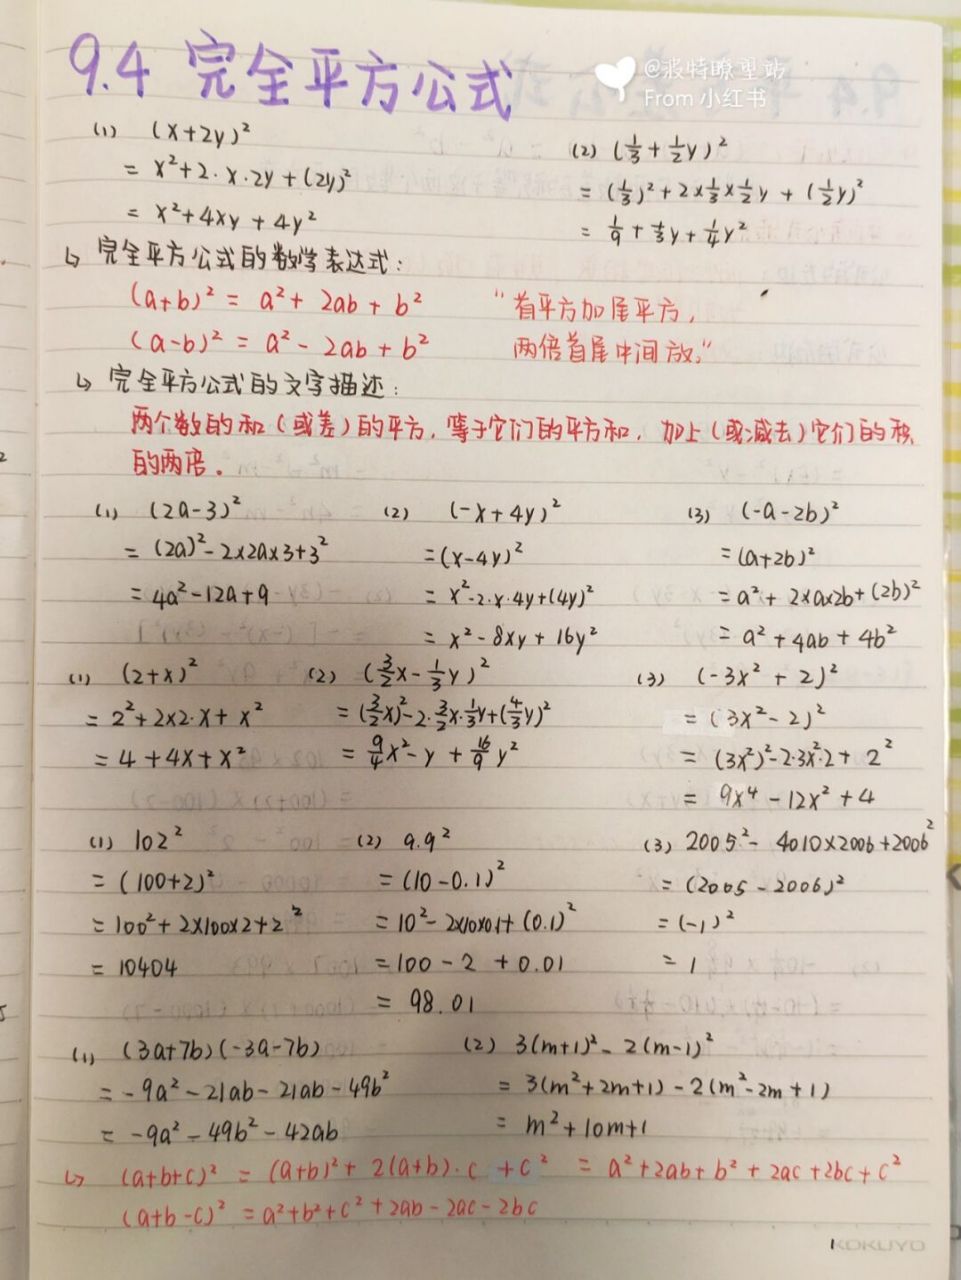 9.4 完全平方公式
@报特瞭望站
From 小红书
(1) (x+2y)²
= x²+2·x·2y+(2y)²
= x²+4xy+4y²
(2) (1/3+1/2y)²
= (1/3)²+2×1/3×1/2y+(1/2y)²
= 1/9+1/3y+1/4y²
↳ 完全平方公式的数学表达式:
(a+b)² = a²+2ab+b²
(a-b)² = a²-2ab+b²
"首平方加尾平方,
两倍首尾中间放。"
↳ 完全平方公式的文字描述:
两个数的和(或差)的平方,等于它们的平方和,加上(或减去)它们的积
的两倍。
(1) (2a-3)²
= (2a)²-2×2a×3+3²
= 4a²-12a+9
(2) (-x+4y)²
= (x-4y)²
= x²-2·x·4y+(4y)²
= x²-8xy+16y²
(3) (-a-2b)²
= (a+2b)²
= a²+2×a×2b+(2b)²
= a²+4ab+4b²
(1) (2+x)²
= 2²+2×2·x+x²
= 4+4x+x²
(2) (3/2x-1/3y)²
= (3/2x)²-2·3/2x·1/3y+(4/3y)²
= 9/4x²-y+16/9y²
(3) (-3x²+2)²
= (3x²-2)²
= (3x²)²-2·3x²·2+2²
= 9x⁴-12x²+4
(1) 102²
= (100+2)²
= 100²+2×100×2+2²
= 10404
(2) 9.9²
= (10-0.1)²
= 10²-2×10×0.1+(0.1)²
= 100-2+0.01
= 98.01
(3) 2005²-4010×2006+2006²
= (2005-2006)²
= (-1)²
= 1
(1) (3a+7b)(-3a-7b)
= -9a²-21ab-21ab-49b²
= -9a²-49b²-42ab
(2) 3(m+1)²-2(m-1)²
= 3(m²+2m+1)-2(m²-2m+1)
= m²+10m+1
↳ (a+b+c)² = (a+b)²+2(a+b)·c+c² = a²+2ab+b²+2ac+2bc+c²
(a+b-c)² = a²+b²+c²+2ab-2ac-2bc
KOKUYO